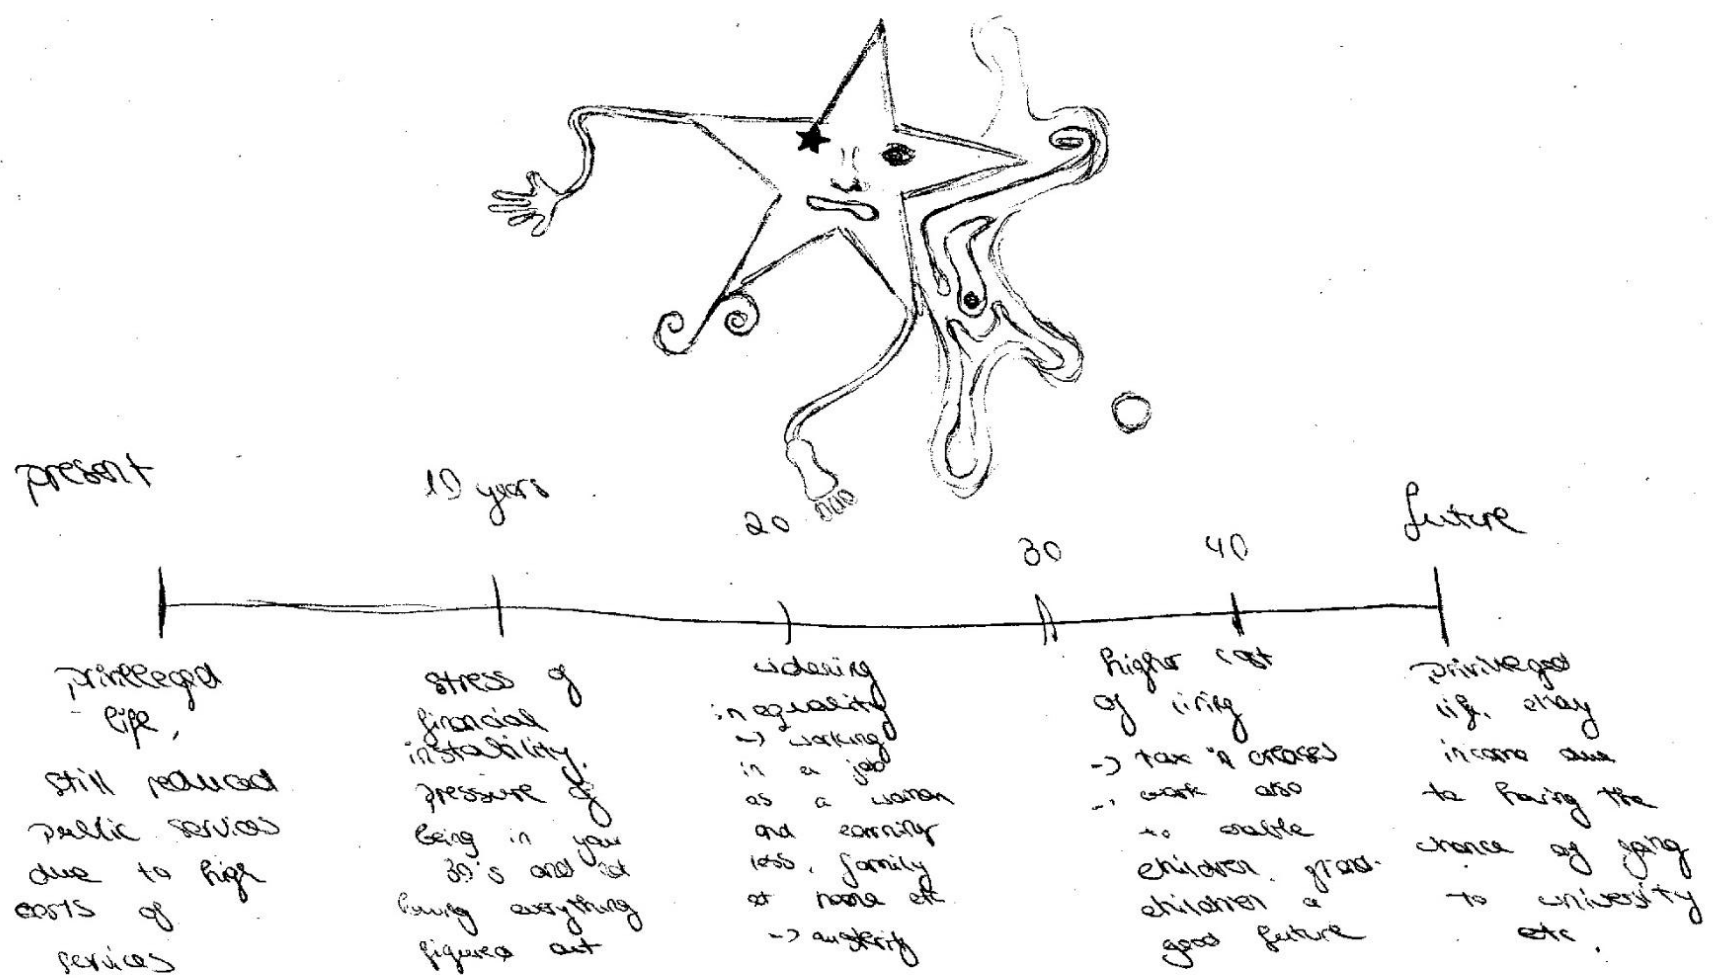 present
10 years
20
30
40
future
privileged
life,
still reduced
public services
due to high
costs of
services
stress of
financial
instability.
pressure of
being in your
30's and not
having everything
figured out
widening
inequality
-> working
in a job
as a woman
and earning
less, family
at home etc
-> austerity
higher cost
of living
-> tax increases
-> work also
to enable
children, grand-
children a
good future
privileged
life, okay
income due
to having the
chance of going
to university
etc.